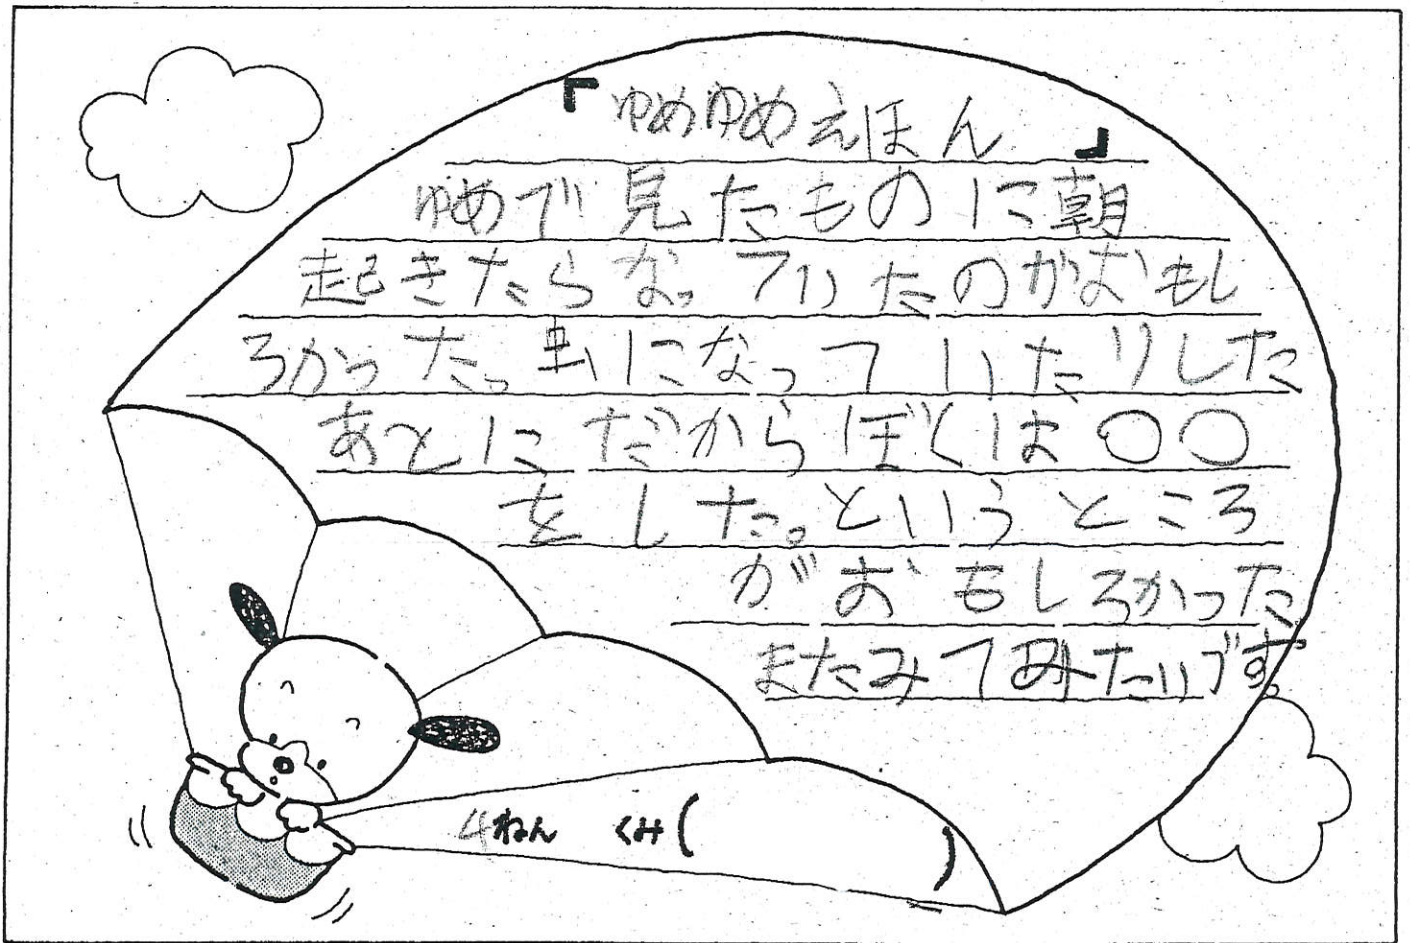 『ゆめゆめえほん』
ゆめで見たものに朝
起きたらなっていたのがおもし
ろかった。虫になっていたりした
あとにだからぼくは〇〇
をした。というところ
がおもしろかった
またみてみたいです。
4ねん くみ( )